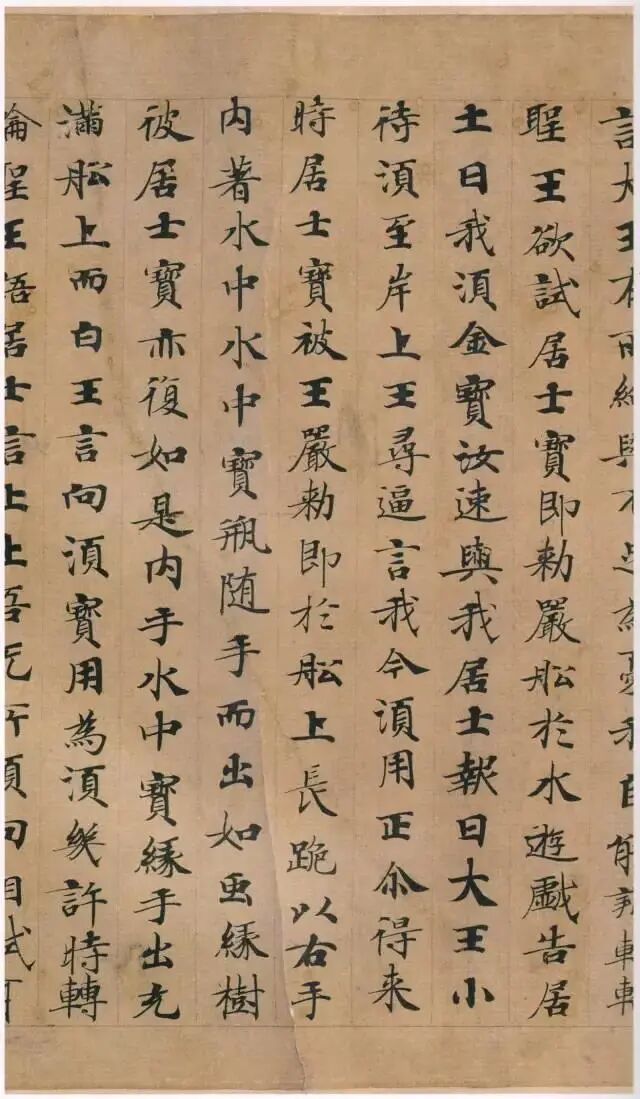 言大王有所給與不足為憂我自能辦轉輪
聖王欲試居士寶即勅嚴舩於水遊戲告居
士曰我須金寶汝速與我居士報曰大王小
待須至岸上王尋逼言我今須用正尒得来
時居士寶被王嚴勅即於舩上長跪以右手
内著水中水中寶瓶随手而出如虫緣樹
彼居士寶亦復如是内手水中寶緣手出充
滿舩上而白王言向須寶用為須幾許時轉
輪聖王語居士言止止吾无所須向相試耳